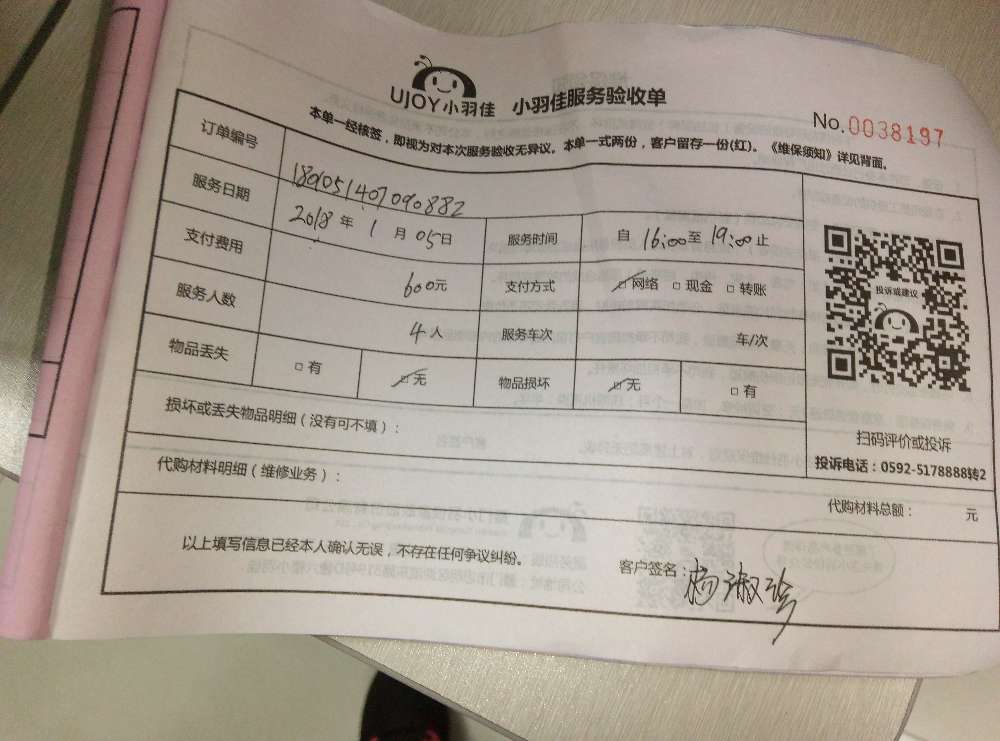 UJOY小羽佳 小羽佳服务验收单
No.0038197
本单一经核签，即视为对本次服务验收无异议。本单一式两份，客户留存一份(红)。《维保须知》详见背面。
订单编号 180105140709082
服务日期 2018年1月05日 服务时间 自16:00至19:00止
支付费用 600元 支付方式 □网络 □现金 □转账
服务人数 4人 服务车次 车/次
物品丢失 □有 □无 物品损坏 □无 □有
投诉或建议
扫码评价或投诉
投诉电话：0592-5178888转2
损坏或丢失物品明细（没有可不填）：
代购材料明细（维修业务）：
代购材料总额： 元
以上填写信息已经本人确认无误，不存在任何争议纠纷。
客户签名：杨淑珍